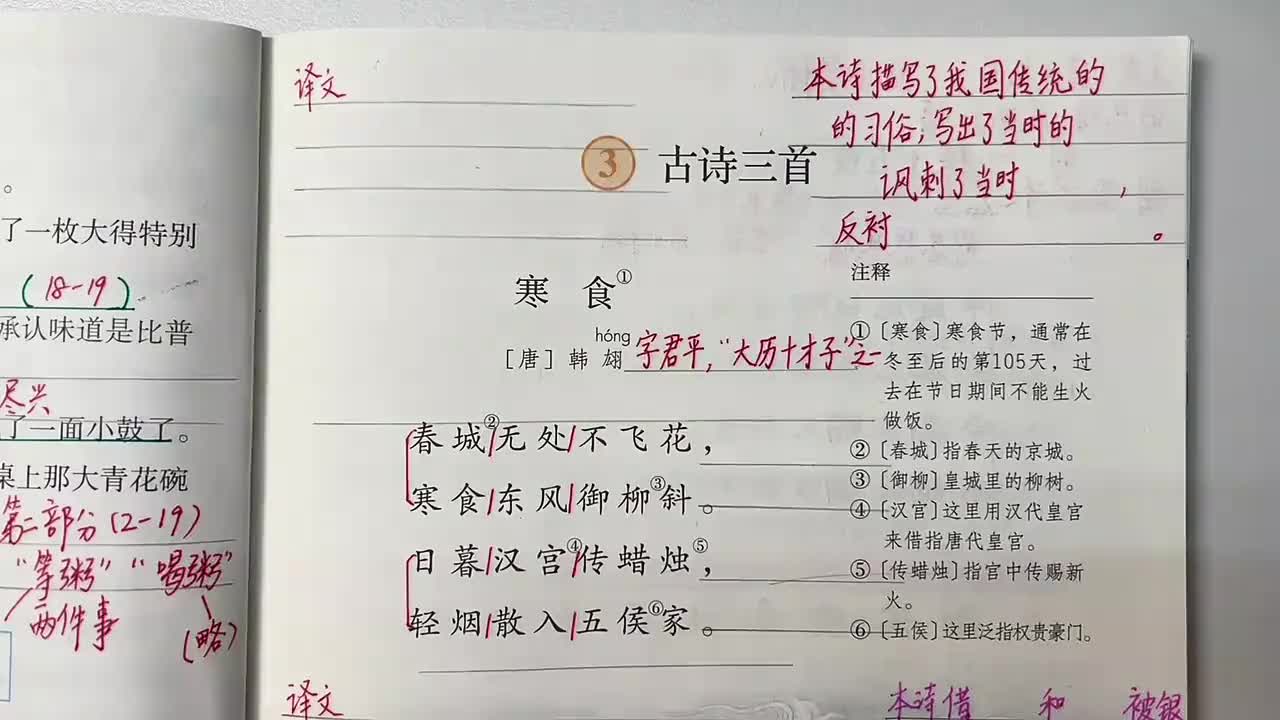 。
了一枚大得特别
(18-19)
承认味道是比普
尽兴
了一面小鼓了。
桌上那大青花碗
第二部分(2-19)
“等粥” “喝粥”
两件事
(略)
译文
本诗描写了我国传统的
的习俗,写出了当时的
讽刺了当时 ,
反衬 。
3 古诗三首
寒食①
hóng
[唐]韩翃 字君平,“大历十才子”之一
春城②/无处/不飞花,
寒食/东风/御柳③斜。
日暮/汉宫④/传蜡烛⑤,
轻烟/散入/五侯⑥家。
注释
①〔寒食〕寒食节,通常在
冬至后的第105天,过
去在节日期间不能生火
做饭。
②〔春城〕指春天的京城。
③〔御柳〕皇城里的柳树。
④〔汉宫〕这里用汉代皇宫
来借指唐代皇宫。
⑤〔传蜡烛〕指宫中传赐新
火。
⑥〔五侯〕这里泛指权贵豪门。
译文
本诗借 和 被银